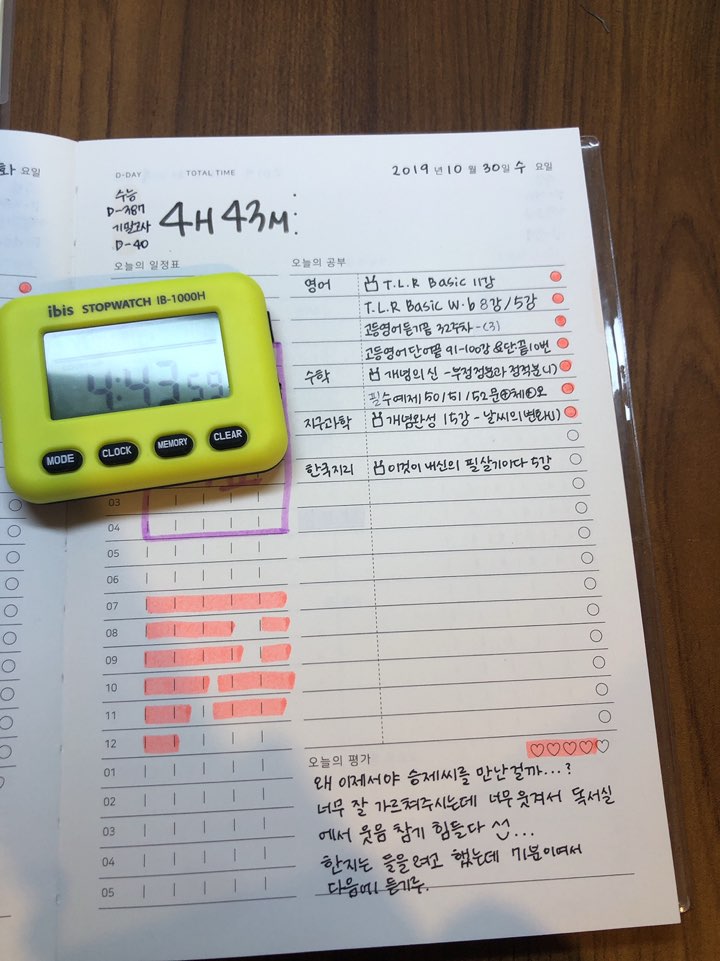 화 요일
D-DAY TOTAL TIME
2019년 10월 30일 수 요일
수능
D-387
기말고사
D-40
4H 43M
오늘의 일정표
오늘의 공부
영어 T.L.R Basic 11강
T.L.R Basic W.b 8강/5강
고등영어듣기끝 32주차-(3)
고등영어단어끝 91-100강 &단·끝10번
수학 개념의신 -부정적분과 정적분(1)
필수예제 50/51/52문
지구과학 개념완성 15강 - 날씨의변화(1)
한국지리 이것이 내신의 필살기이다 5강
ibis STOPWATCH IB-1000H
4:43 59
MODE CLOCK MEMORY CLEAR
03
04
05
06
07
08
09
10
11
12
01
02
03
04
05
오늘의 평가
왜 이제서야 승제씨를 만난걸까...?
너무 잘 가르쳐주시는데 너무 웃겨서 독서실
에서 웃음 참기 힘들다 ^^...
한지는 들을려고 했는데 기봄이여서
다음에 듣기루.